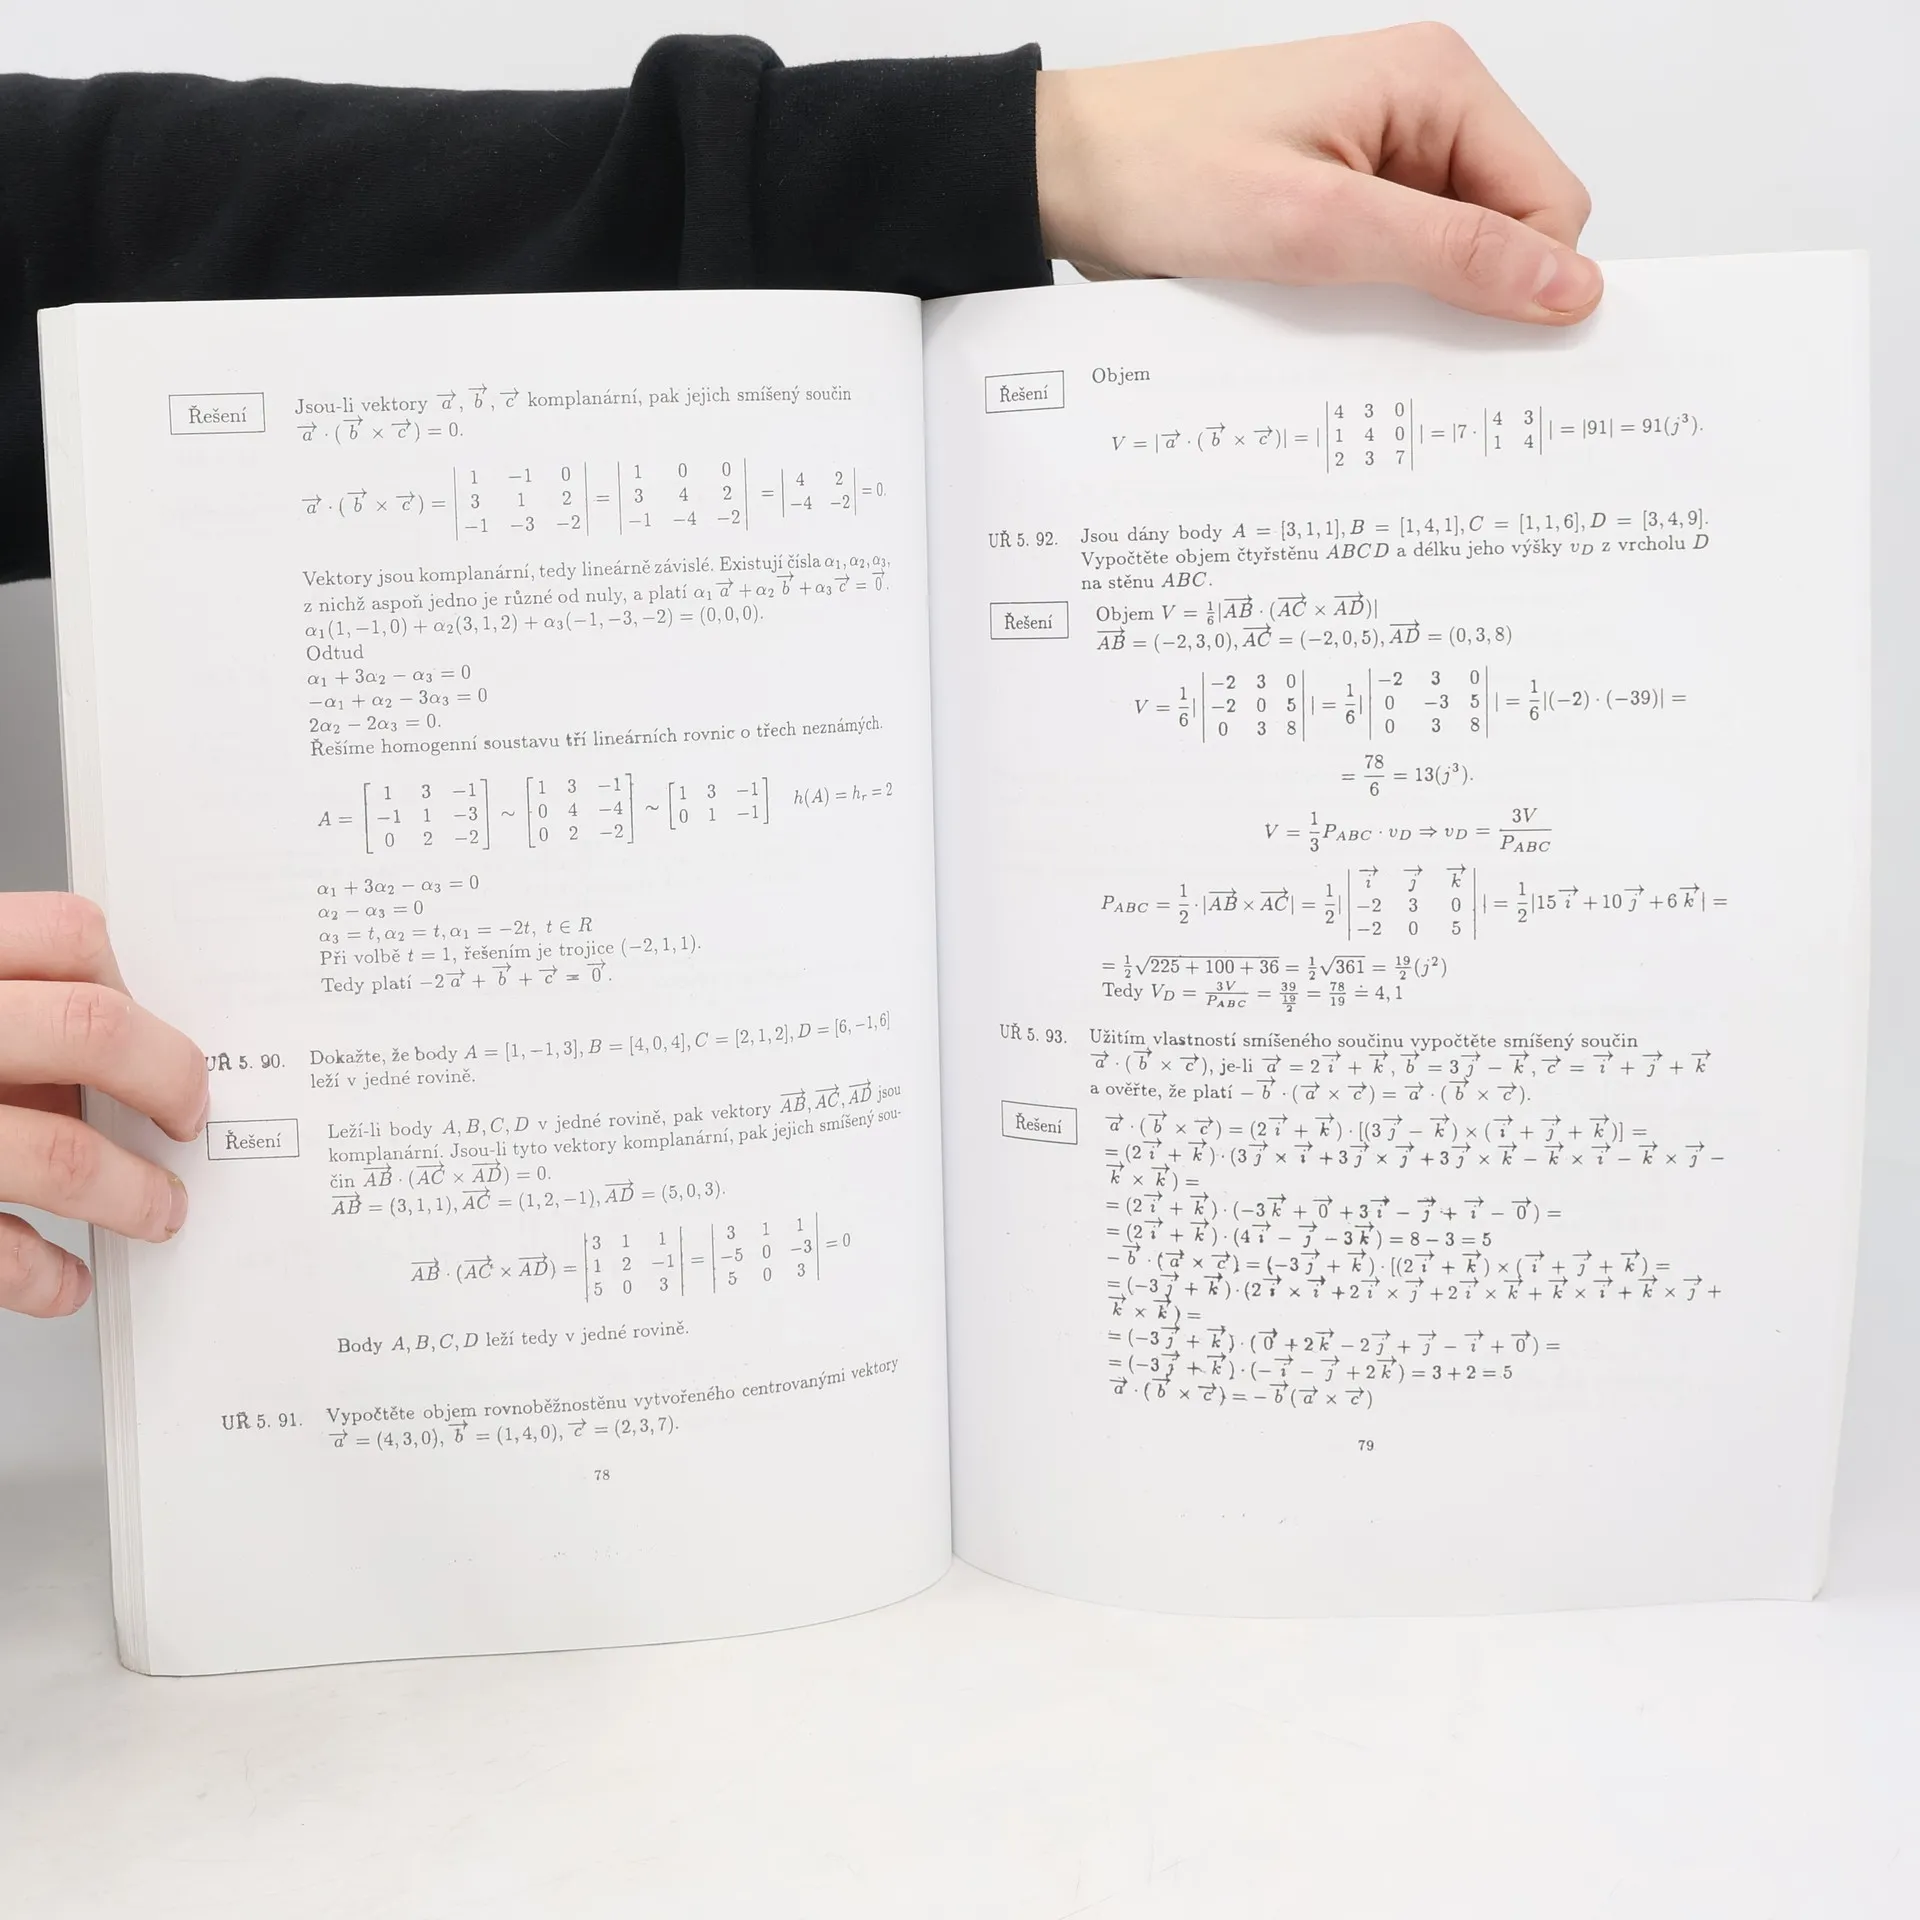 Řešení
Jsou-li vektory a⃗, b⃗, c⃗ komplanární, pak jejich smíšený součin
a⃗ · (b⃗ × c⃗) = 0.
a⃗ · (b⃗ × c⃗) = |1 −1 0; 3 1 2; −1 −3 −2| = |1 0 0; 3 4 2; −1 −4 −2| = |4 2; −4 −2| = 0.
Vektory jsou komplanární, tedy lineárně závislé. Existují čísla α₁, α₂, α₃,
z nichž aspoň jedno je různé od nuly, a platí α₁a⃗ + α₂b⃗ + α₃c⃗ = 0⃗.
α₁(1, −1, 0) + α₂(3, 1, 2) + α₃(−1, −3, −2) = (0, 0, 0).
Odtud
α₁ + 3α₂ − α₃ = 0
−α₁ + α₂ − 3α₃ = 0
2α₂ − 2α₃ = 0.
Řešíme homogenní soustavu tří lineárních rovnic o třech neznámých.
A = [1 3 −1; −1 1 −3; 0 2 −2] ~ [1 3 −1; 0 4 −4; 0 2 −2] ~ [1 3 −1; 0 1 −1] h(A) = hᵣ = 2
α₁ + 3α₂ − α₃ = 0
α₂ − α₃ = 0
α₃ = t, α₂ = t, α₁ = −2t, t ∈ R
Při volbě t = 1, řešením je trojice (−2, 1, 1).
Tedy platí −2a⃗ + b⃗ + c⃗ = 0⃗.
UŘ 5. 90. Dokažte, že body A = [1, −1, 3], B = [4, 0, 4], C = [2, 1, 2], D = [6, −1, 6]
leží v jedné rovině.
Řešení
Leží-li body A, B, C, D v jedné rovině, pak vektory AB⃗, AC⃗, AD⃗ jsou
komplanární. Jsou-li tyto vektory komplanární, pak jejich smíšený sou-
čin AB⃗ · (AC⃗ × AD⃗) = 0.
AB⃗ = (3, 1, 1), AC⃗ = (1, 2, −1), AD⃗ = (5, 0, 3).
AB⃗ · (AC⃗ × AD⃗) = |3 1 1; 1 2 −1; 5 0 3| = |3 1 1; −5 0 −3; 5 0 3| = 0
Body A, B, C, D leží tedy v jedné rovině.
UŘ 5. 91. Vypočtěte objem rovnoběžnostěnu vytvořeného centrovanými vektory
a⃗ = (4, 3, 0), b⃗ = (1, 4, 0), c⃗ = (2, 3, 7).
78
Řešení
Objem
V = |a⃗ · (b⃗ × c⃗)| = ||4 3 0; 1 4 0; 2 3 7|| = |7 · |4 3; 1 4|| = |91| = 91(j³).
UŘ 5. 92. Jsou dány body A = [3, 1, 1], B = [1, 4, 1], C = [1, 1, 6], D = [3, 4, 9].
Vypočtěte objem čtyřstěnu ABCD a délku jeho výšky v_D z vrcholu D
na stěnu ABC.
Řešení
Objem V = 1/6|AB⃗ · (AC⃗ × AD⃗)|
AB⃗ = (−2, 3, 0), AC⃗ = (−2, 0, 5), AD⃗ = (0, 3, 8)
V = 1/6||−2 3 0; −2 0 5; 0 3 8|| = 1/6||−2 3 0; 0 −3 5; 0 3 8|| = 1/6|(−2) · (−39)| =
= 78/6 = 13(j³).
V = 1/3 P_ABC · v_D ⇒ v_D = 3V/P_ABC
P_ABC = 1/2 · |AB⃗ × AC⃗| = 1/2||i⃗ j⃗ k⃗; −2 3 0; −2 0 5|| = 1/2|15i⃗ + 10j⃗ + 6k⃗| =
= 1/2 √(225 + 100 + 36) = 1/2 √361 = 19/2(j²)
Tedy V_D = 3V/P_ABC = 39/(19/2) = 78/19 ≐ 4, 1
UŘ 5. 93. Užitím vlastností smíšeného součinu vypočtěte smíšený součin
a⃗ · (b⃗ × c⃗), je-li a⃗ = 2i⃗ + k⃗, b⃗ = 3j⃗ − k⃗, c⃗ = i⃗ + j⃗ + k⃗
a ověřte, že platí −b⃗ · (a⃗ × c⃗) = a⃗ · (b⃗ × c⃗).
Řešení
a⃗ · (b⃗ × c⃗) = (2i⃗ + k⃗) · [(3j⃗ − k⃗) × (i⃗ + j⃗ + k⃗)] =
= (2i⃗ + k⃗) · (3j⃗ × i⃗ + 3j⃗ × j⃗ + 3j⃗ × k⃗ − k⃗ × i⃗ − k⃗ × j⃗ −
k⃗ × k⃗) =
= (2i⃗ + k⃗) · (−3k⃗ + 0⃗ + 3i⃗ − j⃗ + i⃗ − 0⃗) =
= (2i⃗ + k⃗) · (4i⃗ − j⃗ − 3k⃗) = 8 − 3 = 5
−b⃗ · (a⃗ × c⃗) = (−3j⃗ + k⃗) · [(2i⃗ + k⃗) × (i⃗ + j⃗ + k⃗) =
= (−3j⃗ + k⃗) · (2i⃗ × i⃗ + 2i⃗ × j⃗ + 2i⃗ × k⃗ + k⃗ × i⃗ + k⃗ × j⃗ +
k⃗ × k⃗) =
= (−3j⃗ + k⃗) · (0⃗ + 2k⃗ − 2j⃗ + j⃗ − i⃗ + 0⃗) =
= (−3j⃗ + k⃗) · (−i⃗ − j⃗ + 2k⃗) = 3 + 2 = 5
a⃗ · (b⃗ × c⃗) = −b⃗(a⃗ × c⃗)
79